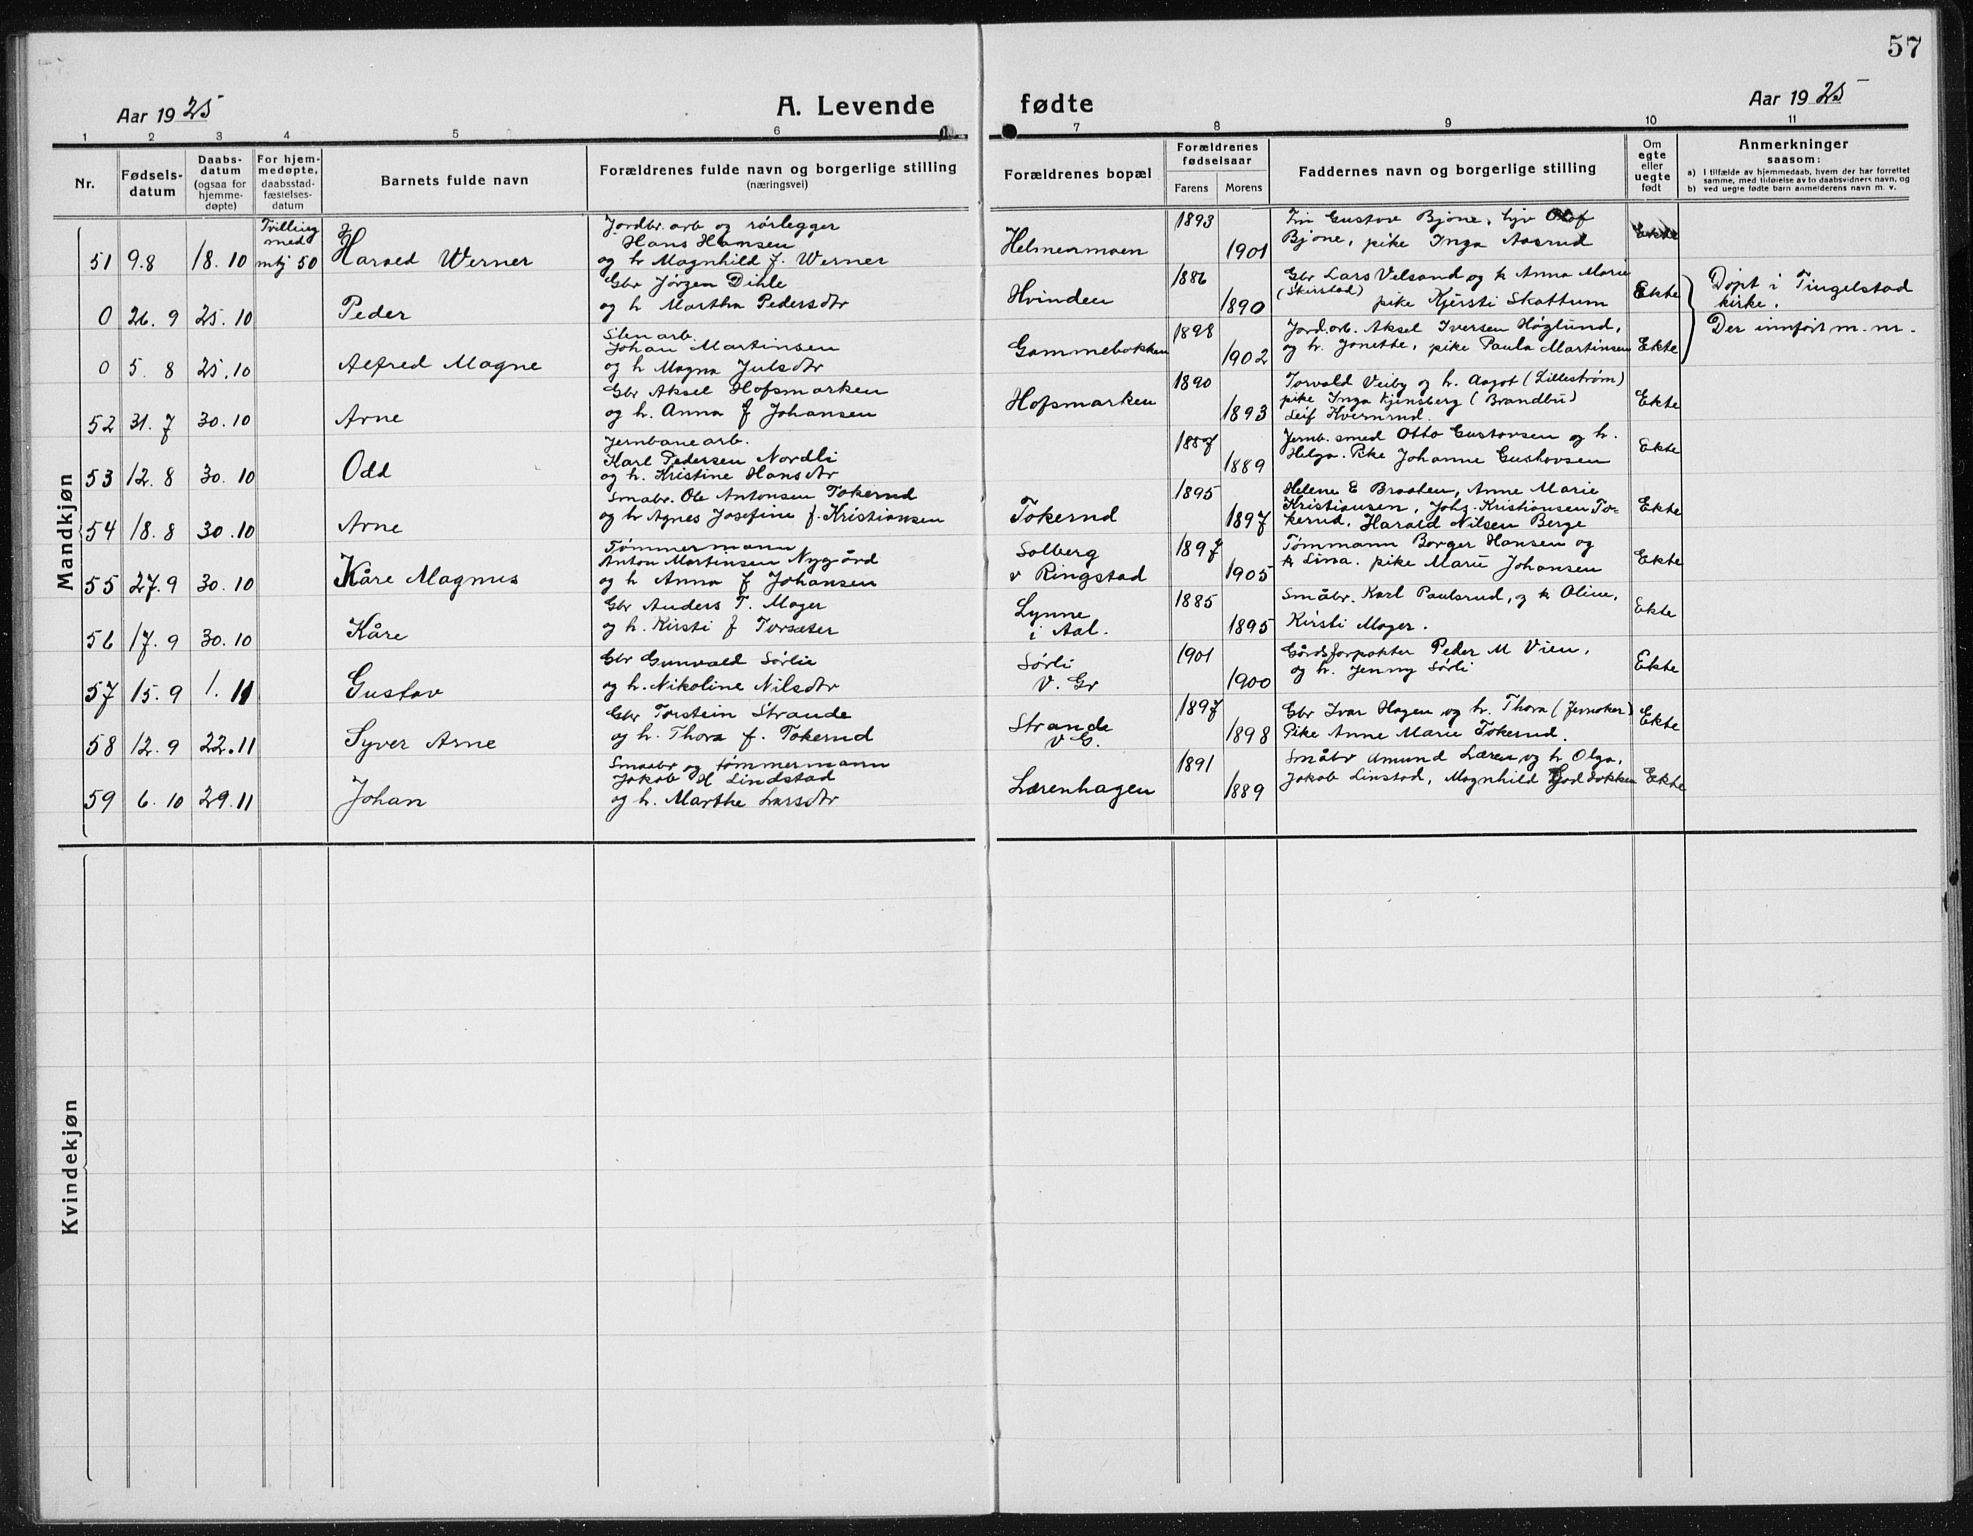 57
Aar 1925
A. Levende fødte
Aar 1925
1 2 3 4 5 6 7 8 9 10 11
Nr.
Fødsels-
datum
Daabs-
datum
(ogsaa for
hjemme-
døpte)
For hjem-
medøpte,
daabsstad-
fæstelses-
datum
Barnets fulde navn
Forældrenes fulde navn og borgerlige stilling
(næringsvei)
Forældrenes bopæl
Forældrenes
fødselsaar
Farens Morens
Faddernes navn og borgerlige stilling
Om
egte
eller
uegte
født
Anmerkninger
saasom:
a) I tilfælde av hjemmedaab, hvem der har forrettet
samme, med tilføielse av to daabsvidners navn, og
b) ved uegte fødte barn anmelderens navn m. v.
Mandkjøn
51 9.8 18.10
Tvilling
med
mtj 50
Harald Werner
Jordbr. arb og rørlegger
Hans Hansen
og h Magnhild f. Werner
Helmenmoen
1893
1901
Gustav Bjone, Olof
Bjone, pike Inga Aasrud
Ekte
0 26.9 25.10
Peder
Gbr Jørgen Dihle
og h Martha Pedersdtr
Hvinden
1886
1890
Gbr Lars Velsand og k Anna Marie
(Skirstad) pike Kjersti Skattum
Ekte
Døpt i Tingelstad
kirke.
Der innført m. nr.
0 5.8 25.10
Alfred Magne
Stenarb.
Johan Martinsen
og h Magna Julsdtr
Gammebakken
1898
1902
Jord.arb. Aksel Iversen Høglund,
og h. Jonette, pike Paula Martinsen
Ekte
52 31.7 30.10
Arne
Gbr Aksel Hofsmarken
og h. Anna f Johansen
Hofsmarken
1890
1893
Torvald Veiby og h. Aagot (Lillestrøm)
pike Inga Kjensberg (Brandbu)
Leif Kvernrud.
Ekte
53 12.8 30.10
Odd
Jernbanearb.
Karl Pedersen Nordli
og h. Kristine Hansdtr
1887
1889
Jernb. smed Otto Gustavsen og h.
Helga. Pike Johanne Gustavsen
Ekte
54 18.8 30.10
Arne
Smabr. Ole Antonsen Tokerud
og h Agnes Josefine f. Kristiansen
Tokerud
1895
1897
Helene E Braaten, Anne Marie
Kristiansen, Johs. Kristiansen To-
kerud, Harald Nilsen Berge
Ekte
55 27.9 30.10
Kåre Magnus
Tømmermann
Anton Martinsen Nygård
og h Anna f Johansen
Solberg
v Ringstad
1897
1905
Tømmann Borger Hansen og
k Lina. pike Marie Johansen
Ekte
56 17.9 30.10
Kåre
Gbr Anders T. Moger
og h. Kirsti f Torsæter
Lynne
i Aal.
1885
1895
Småbr. Karl Paulsrud, og k Oline,
Kirsti Moger.
Ekte
57 15.9 1.11
Gustav
Gbr Gunvald Sørlie
og h. Nikoline Nilsdtr
Sørli
V. Gr
1901
1900
Gårdsforpakter Peder M Vien,
og h. Jenny Sørli
Ekte
58 12.9 22.11
Syver Arne
Gbr Torstein Strande
og h. Thora f. Tokerud
Strande
V G.
1897
1898
Gbr Ivar Hagen og h. Thora (Jevnaker)
Pike Anne Marie Tokerud.
Ekte
59 6.10 29.11
Johan
Smaabr og tømmermann
Jakob H Lindstad
og h. Marthe Larsdtr
Lærenhagen
1891
1889
Småbr Amund Læren og h Olga,
Jakob Linstad, Magnhild
Ekte
Kvindekjøn